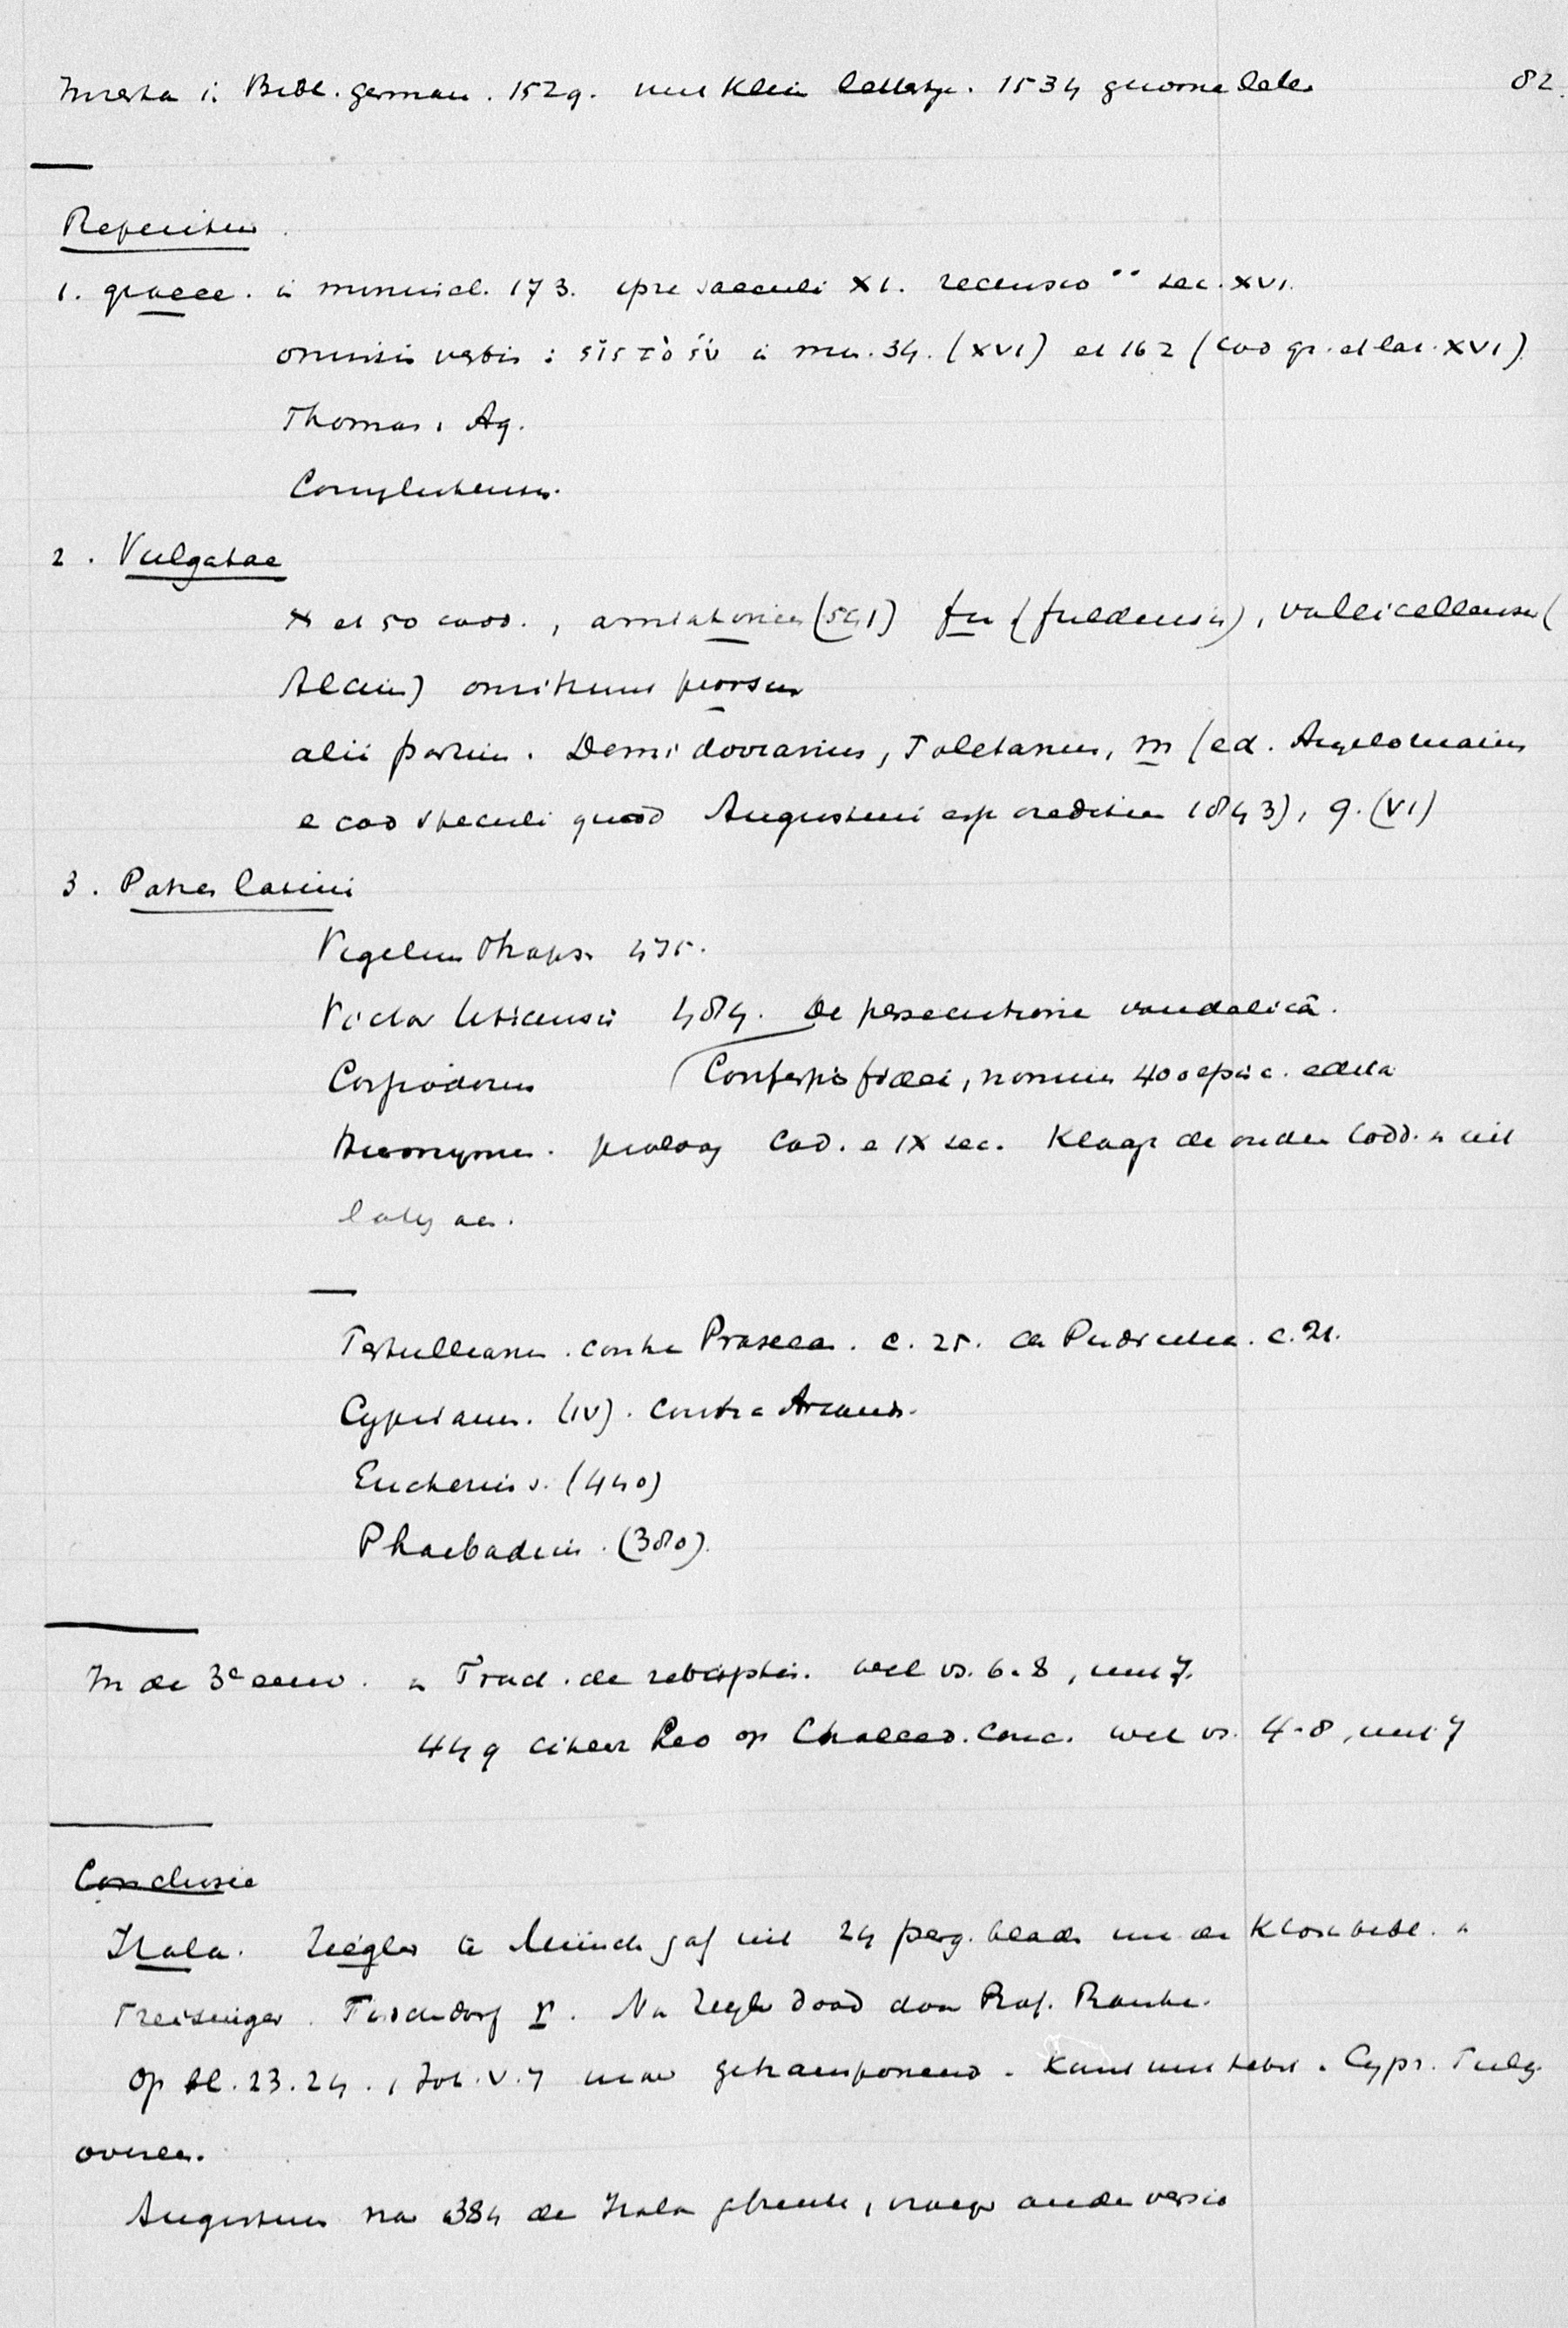 Inserta i. Bibl. german. 1529. met klein lettertje. 1534 gewone letter 82.
Reperitur.
1. graece. in minuscl. 173. ipse saeculi XI. recensio ¨ sec. XVI.
omissis verbis: εἰς τὸ ἕν in min. 34. (XVI) et 162 (cod gr. et lat. XVI)
Thomas, Aq.
Complutensis.
2. Vulgatae
et 50 codd., amiatinus (541) fu (fuldensis), vallicellensis (
Alcuin) omittunt prorsus
alii partim. Demidovianus, Toletanus, m (ed. Angelo Maius
e cod speculi quod Augustini esse creditur 1843), q. (VI)
3. Patres latini
Vigilius Thaps. 475.
Victor Uticensis 484. De persecutione vandalicâ.
Cassiodorus (Confessio fidei, nomine 400 episc. edita
Hieronymus. proloog Cod. e IX sec. Klaagt de ouden Codd. 't uit
laten.
Tertullianus. contra Praxean. c. 25. de Pudicitia. c. 21.
Cyprianus. (IV). contra Arianos.
Eucherius. (440)
Phaebadius. (380).
In de 3e eeuw. in Tract. de rebaptis. wel vs. 6. 8, niet 7.
449 citeert Leo op Chalced. Conc. wel vs. 4-8, niet 7
Conclusie
Itala. Ziegler te Münch gaf uit 24 perg. blad. uit de Kloosterbibl. in
Freisingen. Tischendorf. Na Zieglers dood door Prof. Ranke.
Op bl. 23. 24., Joh. V. 7 maar getransponeerd. Komt met Tert. Cypr. Fulg.
overeen.
Augustinus na 384 de Itala gebruikt, vroeger andere versio